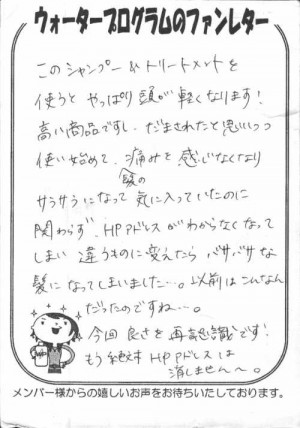 ウォータープログラムのファンレター
このシャンプー&トリートメントを
使うと やっぱり頭が軽くなります!
高い商品ですし、だまされたと思いつつ
使い始めて、痛みを感じなくなり
髪が
サラサラになって 気に入っていたのに
関わらず、HPアドレスがわからなくなって
しまい 違うものに変えたら バサバサな
髪になってしまいました…。以前はこんなん
だったのですね…。
今回 良さを 再認識です!
もう絶対 HPアドレスは
消しません〜。
メンバー様からの嬉しいお声をお待ちいたしております。